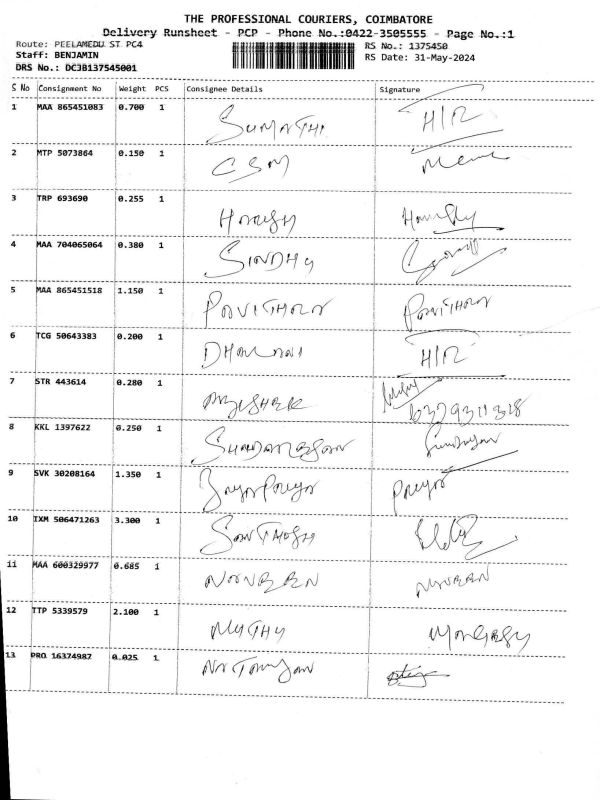 THE PROFESSIONAL COURIERS, COIMBATORE
Delivery Runsheet - PCP - Phone No.:0422-3505555 - Page No.:1
Route: PEELAMEDU ST PC4
RS No.: 1375450
Staff: BENJAMIN
RS Date: 31-May-2024
DRS No.: DCJB137545001
S No Consignment No Weight PCS Consignee Details Signature
1 MAA 865451083 0.700 1 SUMATHI H/R
2 MTP 5073864 0.150 1 CSM
3 TRP 693690 0.255 1
4 MAA 704065064 0.380 1 SINDHU
5 MAA 865451518 1.150 1 PAVITHRA PAVITHRA
6 TCG 50643383 0.200 1 DHARANI H/R
7 STR 443614 0.280 1 ABISHEK
6379311318
8 KKL 1397622 0.250 1 SUNDARESAN
9 SVK 30208164 1.350 1 Jaya Priya Priya
10 IXM 506471263 3.300 1 SANTHOSH
11 MAA 600329977 0.685 1 NAVEEN NAVEEN
12 TTP 5339579 2.100 1 MUTHU
13 PRO 16374987 0.025 1 NATARAJAN